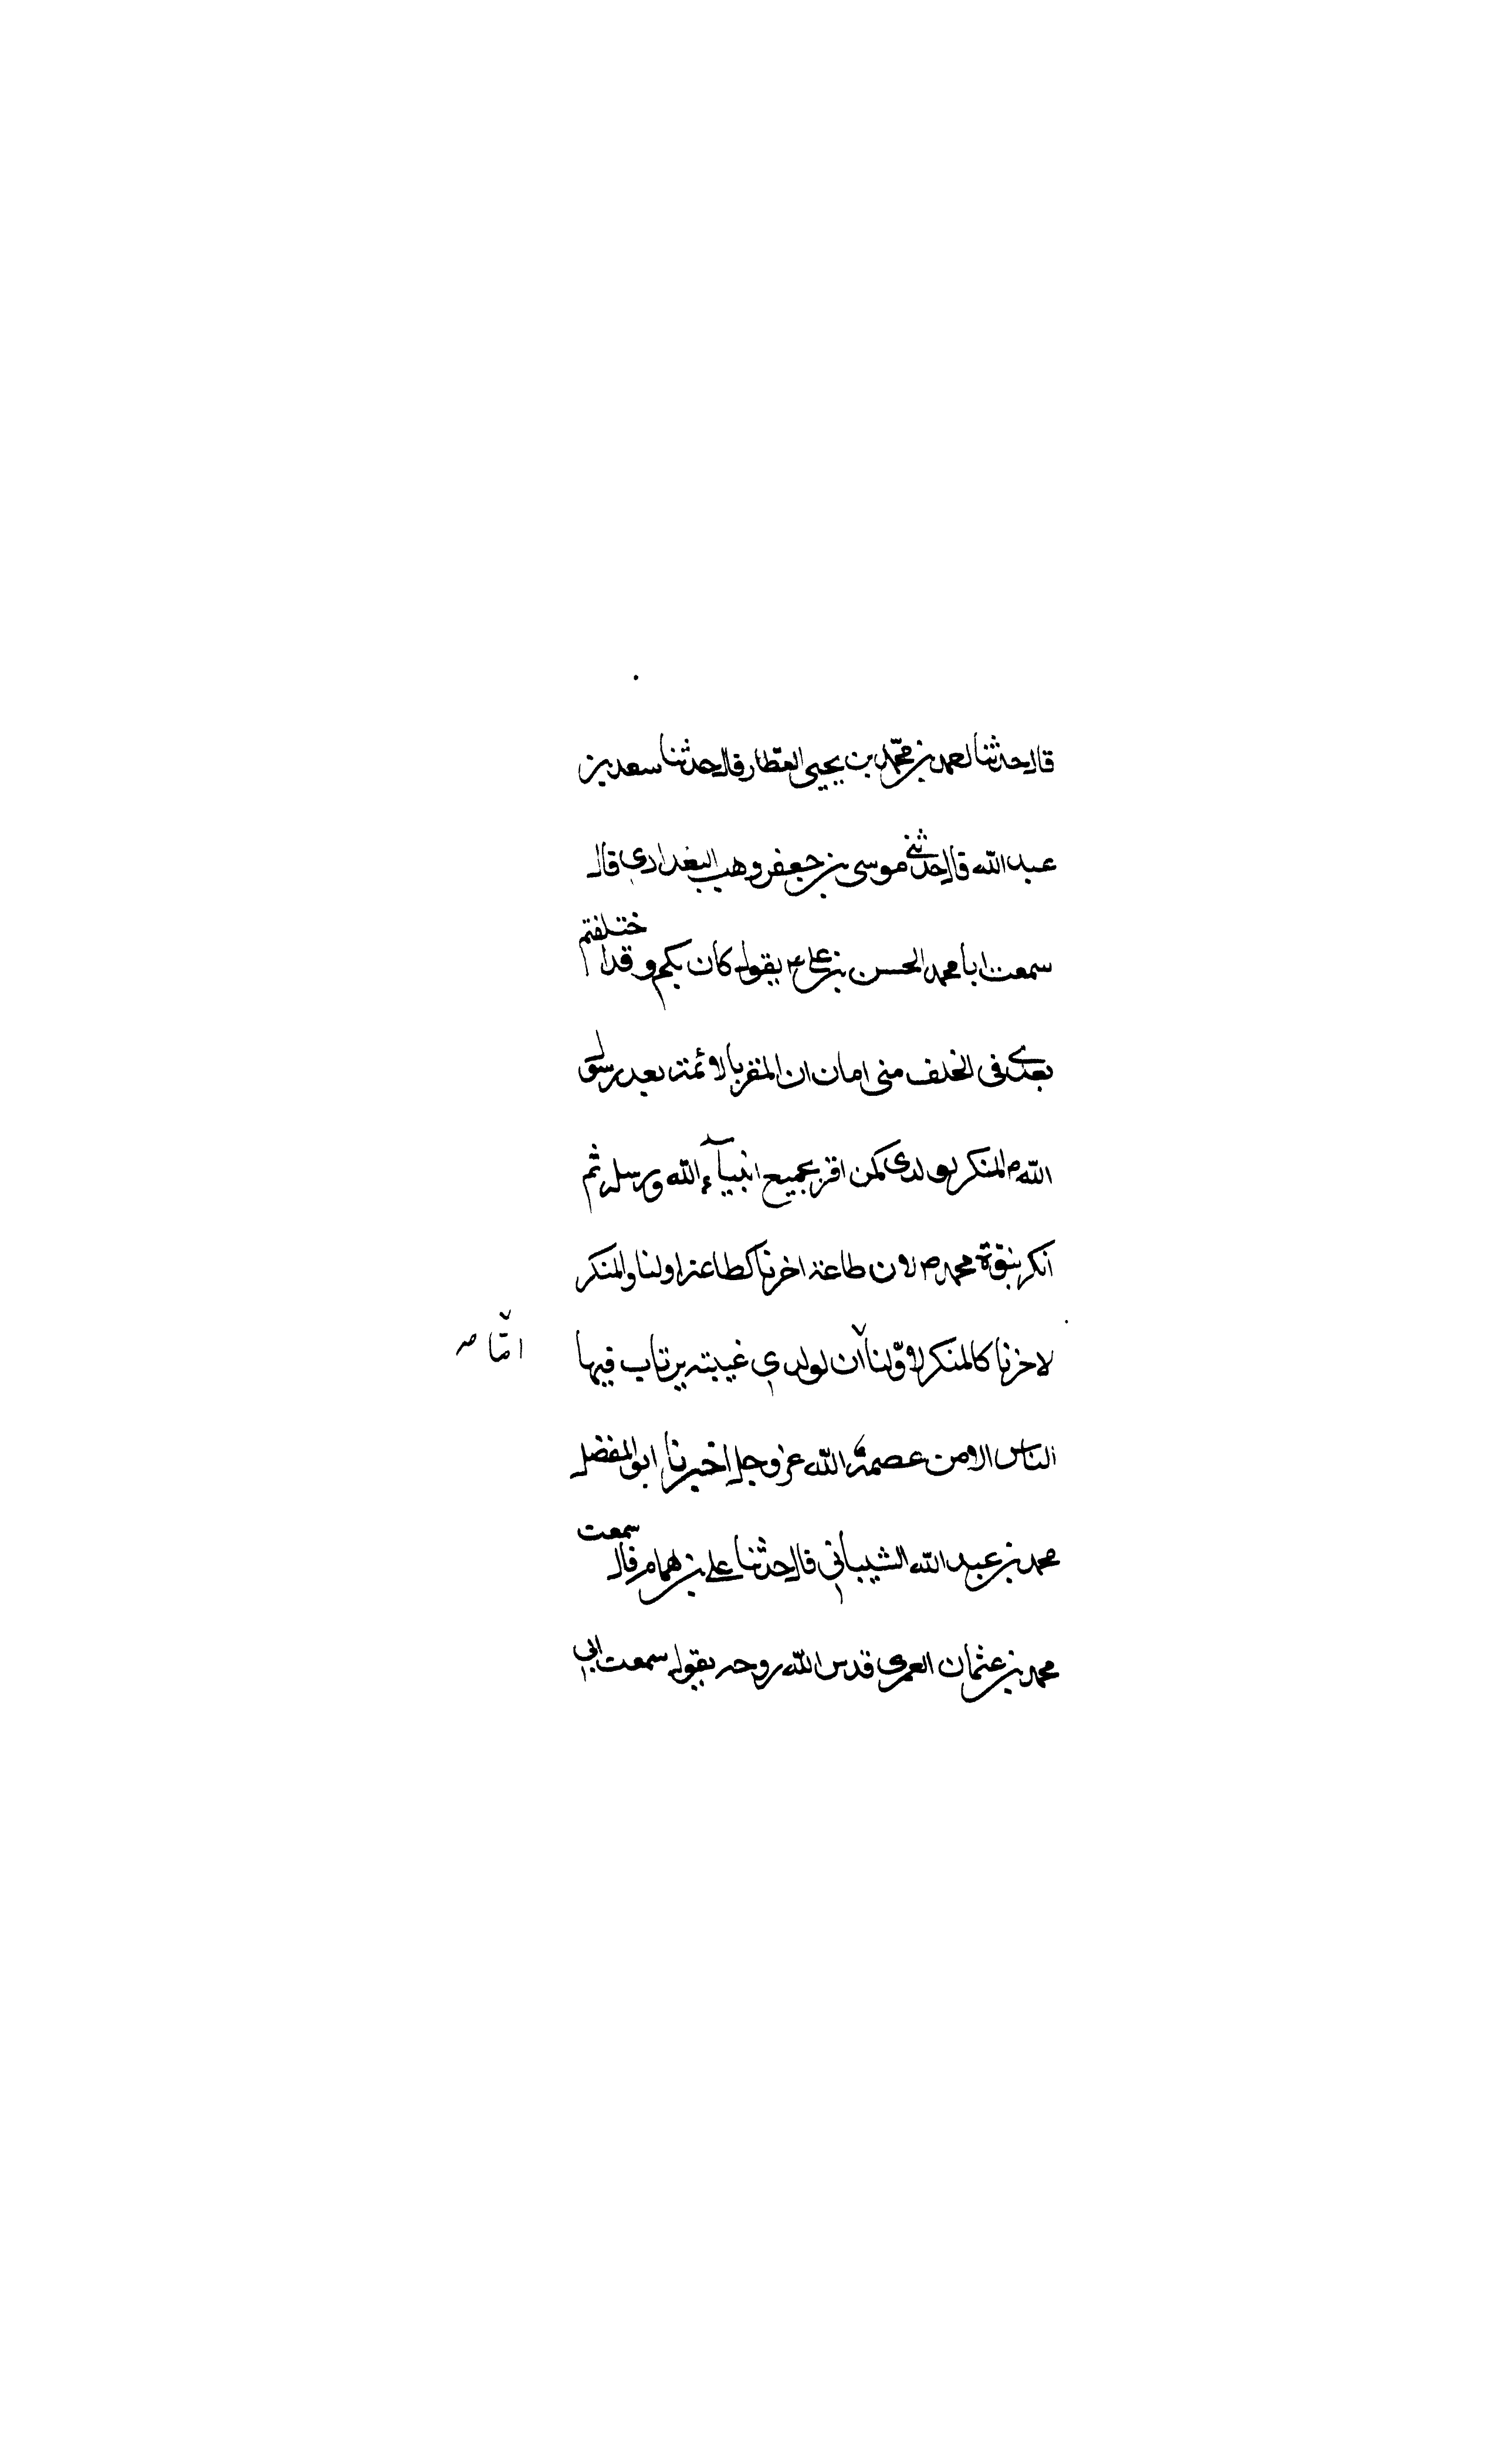 قال حدثنا احمد بن محمّد بن يحيى العطار قال حدثنا سعد بن
عبد الله قال حدثني موسى بن جعفر وهب البغدادي قال
سمعت ابا محمد الحسن بن علي ع يقول كان بكم وقد اختلفتم
بعدي في الخلف مني امان ان المقر بالائمة بعد رسول
الله ص المنكر لولدى كمن اقر بجميع انبيآء الله ورسله ثم
انكر بنبوّة محمد ص لان طاعة اخرنا كطاعة اولنا والمنكر
لاخرنا كالمنكر لاوّلنا ان لولدي غيبة يرتاب فيها
امّا صـ
الناس الا من عصمه الله عز وجل اخبرنا ابو المفضل
محمد بن عبد الله الشيباني قال حدثنا علي بن همام قال سمعت
محمد بن عثمان العمرى قدس الله روحه يقول سمعت ابي